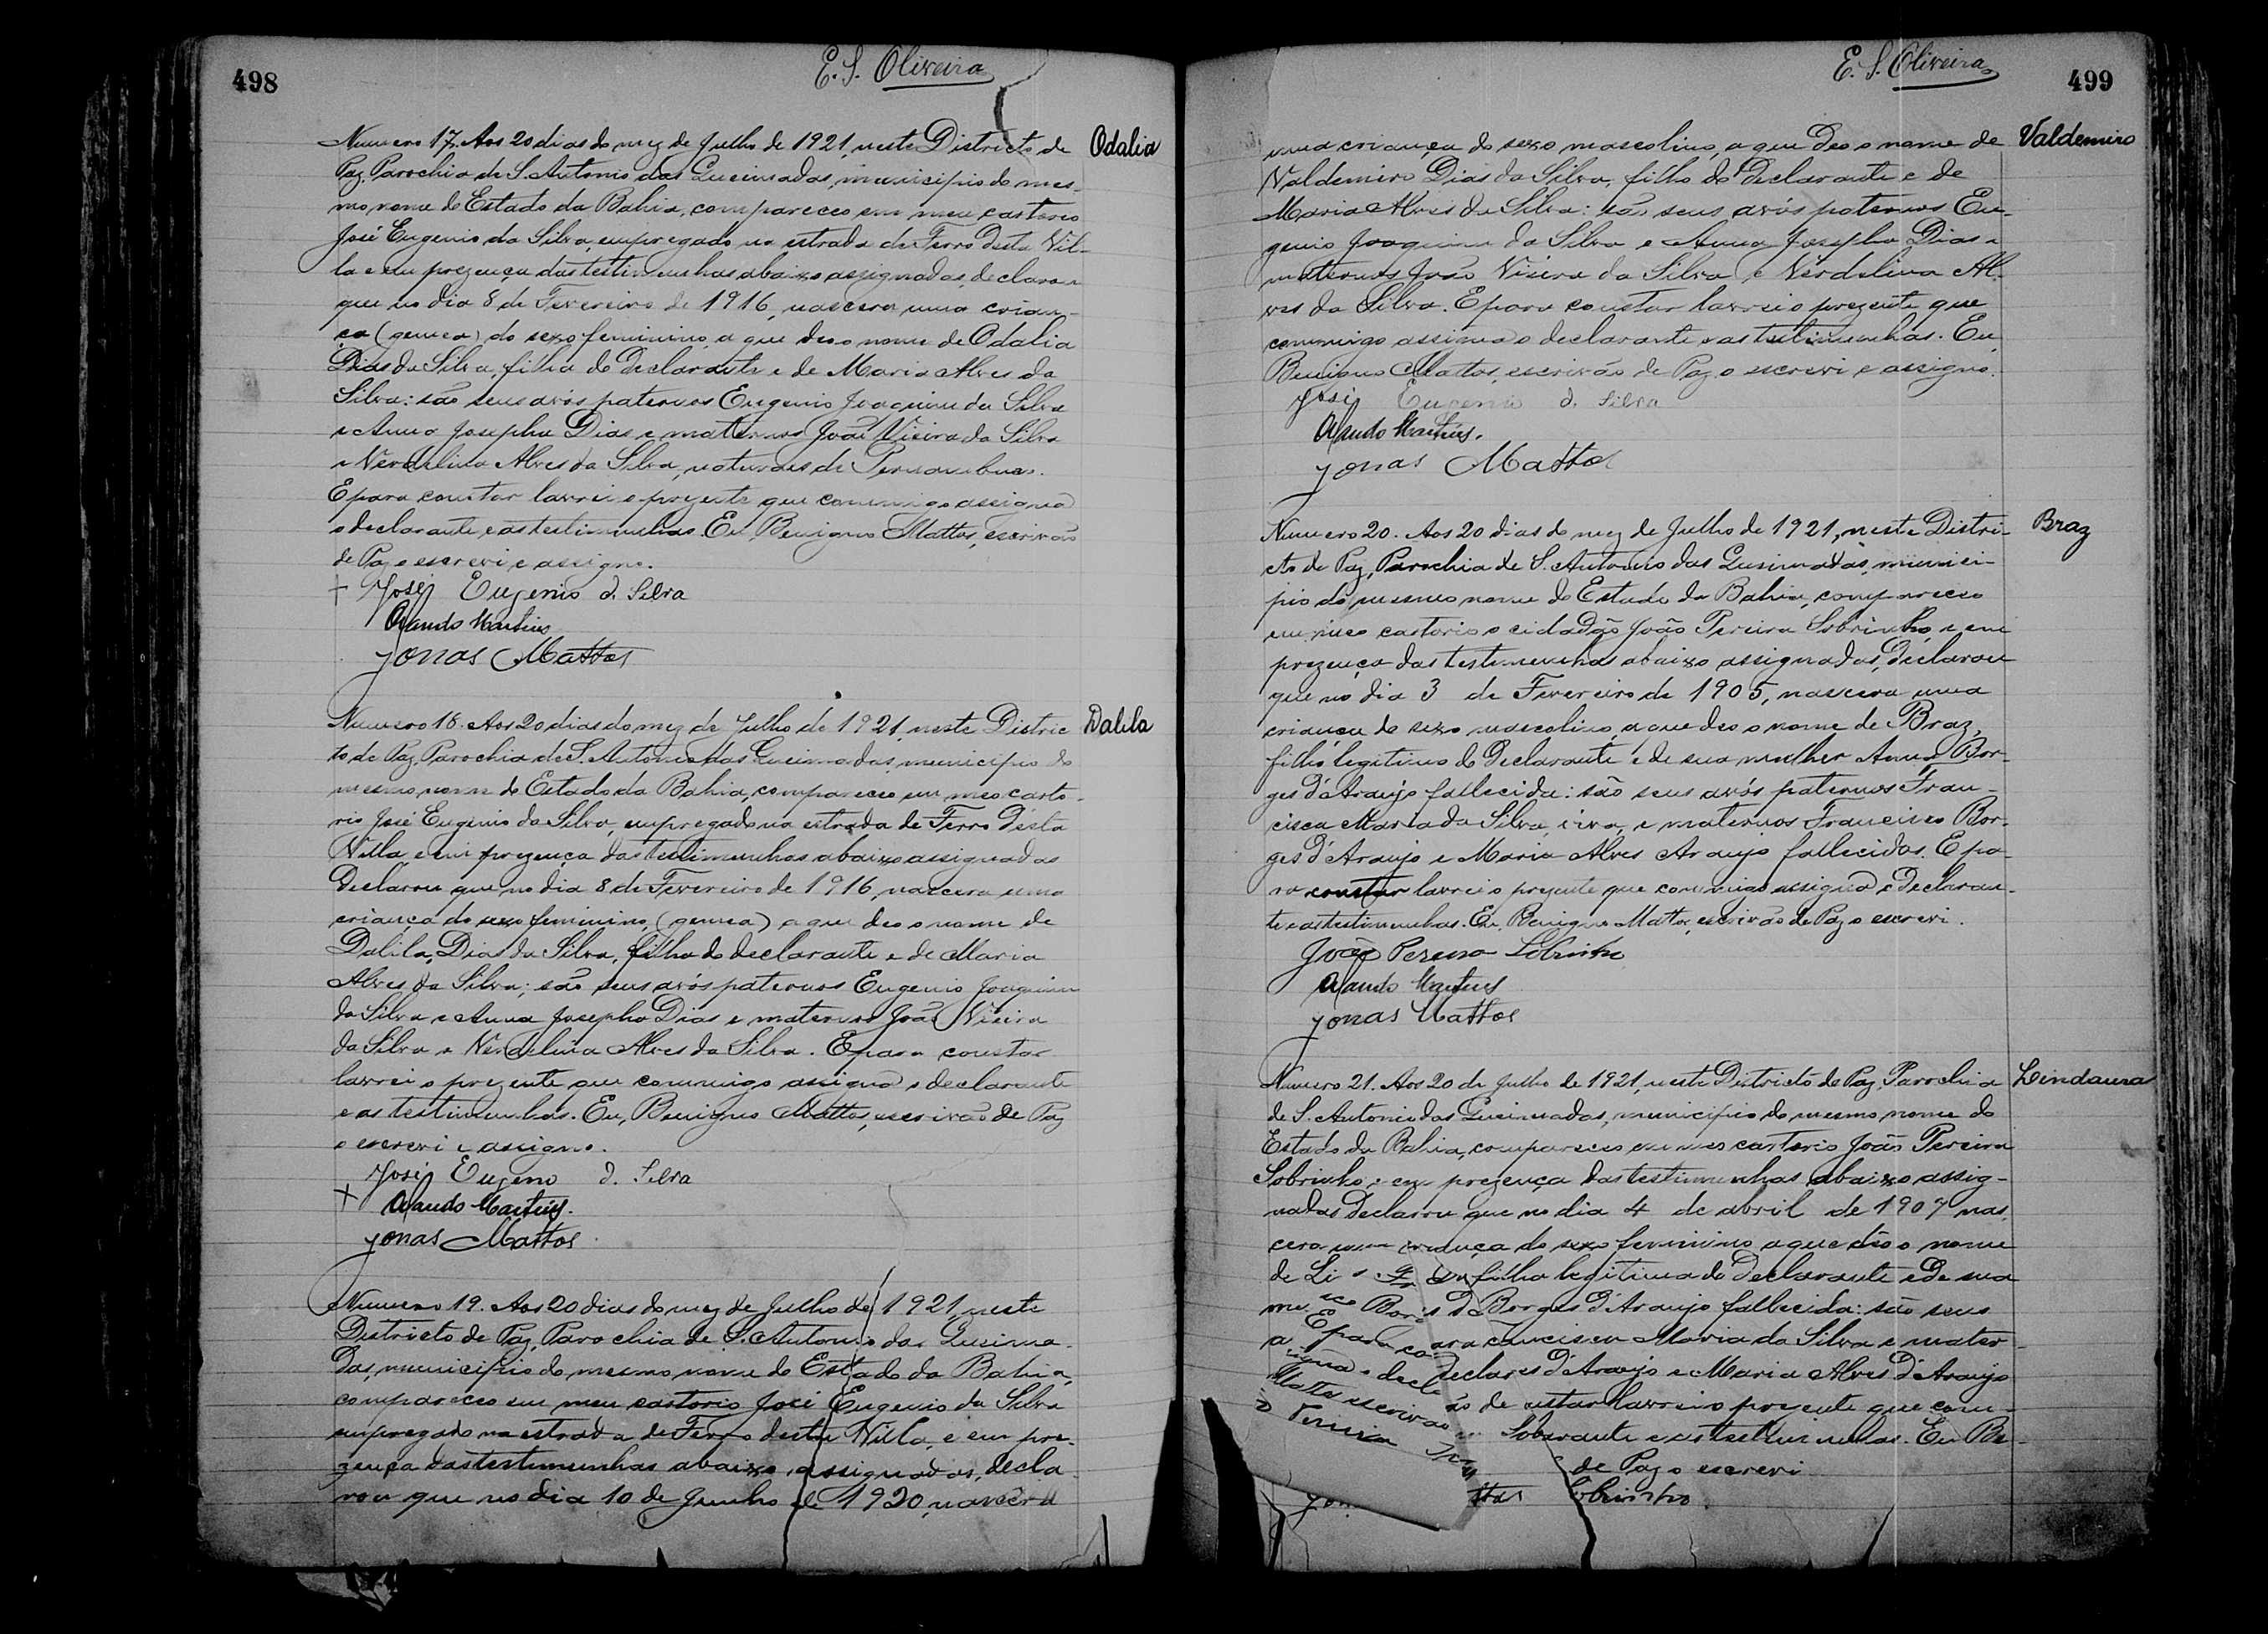 498
E. S. Oliveira
Numero 17. Aos 20 dias do mez de Julho de 1921, neste Districto de
Odalia
Paz, Parochia de S. Antonio das Queimadas, municipio do mes-
mo nome do Estado da Bahia, compareceo em meu cartorio
José Eugenio da Silva, empregado na estrada de Ferro desta Vil-
la e em prezença das testimunhas abaixo assignadas, declarou
que no dia 8 de Fevereiro de 1916, nascera uma crian-
ça (gemea) do sexo feminino, a que deo o nome de Odalia
Dias da Silva, filha do declarante e de Maria Alves da
Silva: são seus avós paternos Eugenio Joaquim da Silva
e Anna Josepha Dias e maternos João Vieira da Silva
e Nerdelina Alves da Silva, naturaes de Pernambuco.
E para constar lavrei o prezente que commigo assigna
o declarante e as testimunhas. Eu, Benigno Mattos, escrivão
de Paz o escrevi e assigno.
+ José Eugenio d. Silva
Martins
Jonas Mattos
Numero 18. Aos 20 dias do mez de Julho de 1921, neste Distric
Dalila
to de Paz, Parochia de S. Antonio das Queimadas, municipio do
mesmo nome do Estado da Bahia, compareceo em meo carto-
rio José Eugenio da Silva, empregado na estrada de Ferro desta
Villa, e em prezença das testimunhas abaixo assignadas
declarou que no dia 8 de Fevereiro de 1916, nascera uma
criança do sexo feminino, (gemea) a que deo o nome de
Dalila Dias da Silva, filha do declarante e de Maria
Alves da Silva; são seus avós paternos Eugenio Joaquim
da Silva e Anna Josepha Dias e maternos João Vieira
da Silva e Nerdelina Alves da Silva. E para constar
lavrei o prezente que commigo assigna o declarante
e as testimunhas. Eu, Benigno Mattos, escrivão de Paz
o escrevi e assigno.
José Eugeno d. Silva
+ Martins.
Jonas Mattos
Numero 19. Aos 20 dias do mez de Julho de 1921, neste
Districto de Paz, Parochia de S. Antonio das Queima-
das, municipio do mesmo nome do Estado da Bahia,
compareceo em meu cartorio José Eugenio da Silva
empregado na estrada de Ferro desta Villa, e em pre-
zença das testimunhas abaixo assignadas, decla
rou que no dia 10 de Junho de 1920, nascera
E. S. Oliveira
499
uma criança do sexo mascolino, a que deo o nome de
Valdemiro
Valdemiro Dias da Silva, filho do declarante e de
Maria Alves da Silva: são seus avós paternos Eu-
genio Joaquim da Silva e Anna Josepha Dias e
maternos João Vieira da Silva e Nerdelina Al-
ves da Silva. E para constar lavrei o prezente que
commigo assigna o declarante e as testimunhas. Eu,
Benigno Mattos, escrivão de Paz o escrevi e assigno.
José Eugenio d. Silva
Martins.
Jonas Mattos
Numero 20. Aos 20 dias do mez de Julho de 1921, neste Distri-
Braz
cto de Paz, Parochia de S. Antonio das Queimadas, munici-
pio do mesmo nome do Estado da Bahia, compareceo
em meo cartorio o cidadão João Pereira Sobrinho, e em
prezença das testimunhas abaixo assignadas, declarou
que no dia 3 de Fevereiro de 1905, nascera uma
criança do sexo mascolino, a que deo o nome de Braz,
filho legitimo do declarante e de sua mulher Anna Bor-
ges d'Araujo fallecida: são seus avós paternos Fran-
cisca Maria da Silva, viva, e maternos Francisco Bor-
ges d'Araujo e Maria Alves Araujo fallecidos. E pa-
ra constar lavrei o prezente que commigo assigna o declaran-
te e as testimunhas. Eu, Benigno Mattos, escrivão de Paz o escrevi.
João Pereira Sobrinho
Martins
Jonas Mattos
Numero 21. Aos 20 de Julho de 1921, neste Districto de Paz, Parochia
Lindaura
de S. Antonio das Queimadas, municipio do mesmo nome do
Estado da Bahia, compareceo em meo cartorio João Pereira
Sobrinho, e em prezença das testimunhas abaixo assig-
nadas declarou que no dia 4 de abril de 1907 nas
cera uma criança do sexo feminino a que deo o nome
de Li filha legitima do declarante e de sua
Borges d'Araujo fallecida: são seus
E para Maria da Silva e mater
d'Araujo e Maria Alves d'Araujo
constar lavrei o prezente que com-
Mattos escrivão e as testimunhas. Eu Be-
Pereira
de Paz o escrevi
Sobrinho.